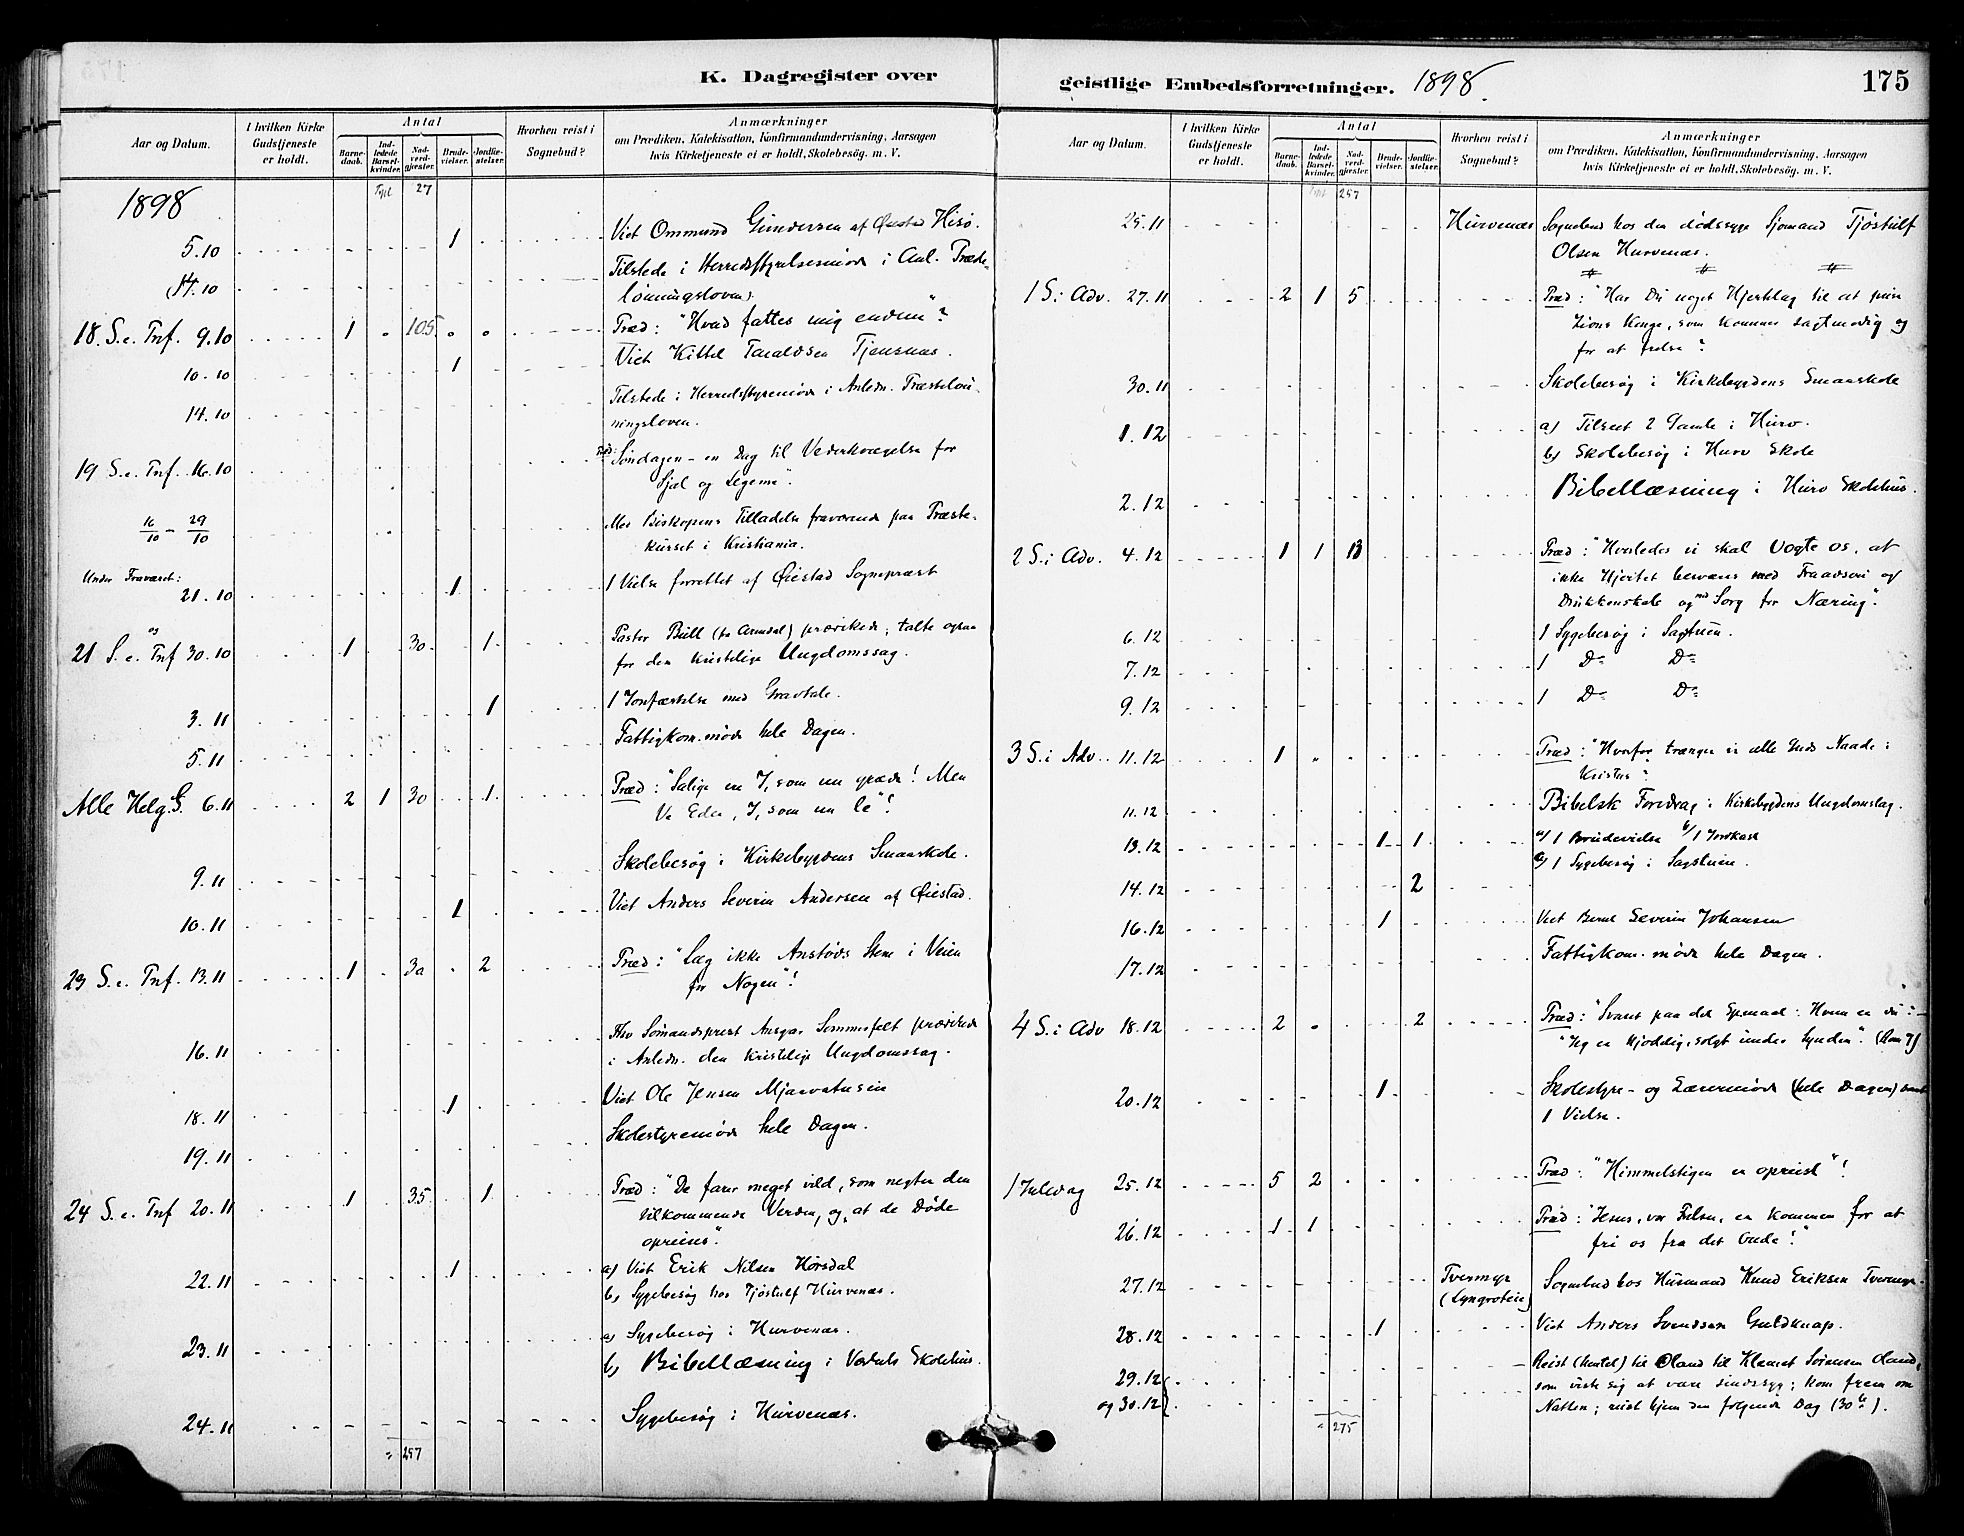 K. Dagregister over
Aar og Datum.
I hvilken Kirke Gudstjeneste er holdt.
Antal
Barnedaab.
Indledede Barselkvinder.
Nadverdgjester.
Brudevielser.
Jordfæstelser.
Hvorhen reist i Sognebud?
Anmærkninger
om Prædiken, Katekisation, Konfirmandundervisning, Aarsagen
hvis Kirketjeneste ei er holdt, Skolebesøg. m. V.
27
1898
5.10 1 Viet Ommund Gundersen af Øiestad Hisø.
14.10 Tilstede i Herredsstyrelsesmøde i Anl. Præste-
lønningsloven).
18. S. e. Tref. 9.10 1 105 Præd: "Hvad fattes mig endnu"?
10.10 1 Viet Kittel Taraldsen
14.10 Tilstede i Herredsstyremøde i Anledn. Præsteløn-
ningsloven.
19 S. e. Tref. 16.10 Præd: Søndagen - en Dag til Vederkvægelse for
Sjæl og Legeme".
16/10 - 29/10 Med Biskopens Tilladelse fraværende paa Præste-
kurset i Kristiania.
Under Fraværet:
21.10 1 1 Vielse forrettet af Øiestad Sognepræst
og
21 S. e. Tref 30.10 1 30 1 Pastor Bull (fra Arendal) prædikede; talte ogsaa
for den kristelige Ungdomssag.
3.11 1 1 Jordfæstelse med Gravtale.
5.11 Fattigkom.møde hele Dagen.
Alle Helg. S. 6.11 2 1 30 1 Præd: "Salige ere I, som nu græde! Men
Ve Eder, I, som nu le"!
9.11 Skolebesøg i Kirkebygdens Smaaskole.
10.11 1 Viet Anders Severin Andersen af Øiestad.
23 S. e. Tref. 13.11 1 30 2 Præd: "Læg ikke Anstøds Stene i Veien
for Nogen"!
16.11 Hrr Sømandsprest Ansgar Sommerfelt prædikede
i Anledn. den kristelige Ungdomssag.
18.11 1 Viet Ole Jensen
19.11 Skolestyremøde hele Dagen.
24 S. e. Tref 20.11 1 35 1 Præd: "De farer meget vild, som negter den
tilkommende Verden, og, at de Døde
opreises".
22.11 1 a) Viet Erik Nilsen Hørsdal
b) Sygebesøg hos Tjøstulf Hurvenæs.
23.11 a) Sygebesøg i Hurvenæs.
b) Bibellæsning i Skolehus.
24.11 Sygebesøg i Hurvenæs.
257
geistlige Embedsforretninger. 1898.
175
Aar og Datum.
I hvilken Kirke Gudstjeneste er holdt.
Antal
Barnedaab.
Indledede Barselkvinder.
Nadverdgjester.
Brudevielser.
Jordfæstelser.
Hvorhen reist i Sognebud?
Anmærkninger
om Prædiken, Katekisation, Konfirmandundervisning, Aarsagen
hvis Kirketjeneste ei er holdt, Skolebesøg. m. V.
257
25.11 Hurvenæs Sognebud hos den dødssyge Sjømand Tjøstulf
Olsen Hurvenæs.
1 S. i Adv. 27.11 2 1 5 Præd: "Har Du noget Hjertelag til at
Zions Konge, som kommer sagtmodig og
for at frelse"?
30.11 Skolebesøg i Kirkebygdens Smaaskole
1.12 a) Tilseet 2 Gamle i Hurv.
b) Skolebesøg i Hurv Skole
2.12 Bibellæsning i Hurv Skolehus.
2 S. i Adv. 4.12 1 1 13 Præd: "Hvorledes vi skal vogte os, at
ikke Hjertet besværes med Fraadseri og
Drukkenskab og med Sorg for Næring".
6.12 1 Sygebesøg i Sagstuen.
7.12 1 Do Do
9.12 1 Do Do
3 S. i Adv. 11.12 1 Præd: "Hvorfor trænger vi alle Guds Naade i
Kristus"?
11.12 Bibelsk Foredrag i Kirkebygdens Ungdomslag.
13.12 1 1 a) 1 Brudevielse b) 1 Jordkast
c) 1 Sygebesøg i Sagstuen.
14.12 2
16.12 1 Viet Bernt Severin Johansen
17.12 Fattigkom.møde hele Dagen.
4 S. i Adv 18.12 2 2 Præd: "Svaret paa det Spmaal: Hvem er du":
"Jeg er kjødelig, solgt under Synden". (Rom 7)
20.12 1 Skolestyre- og Lærermøde (hele Dagen) samt
1 Vielse.
1 Juledag 25.12 5 2 Præd: "Himmelstigen er opreist"!
26.12 1 1 Præd: "Jesus, vor Frelser, er kommen for at
fri os fra det Onde!"
27.12 Tvermyr (Lyngroteie) Sognebud hos Husmand Knud Eriksen Tvermyr.
28.12 1 Viet Anders Svendsen Guldknap.
29.12 Reist (hentet) til Oland til Klemet Sørensen Oland,
og 30.12 som viste sig at være sindssyg; kom frem om
Natten; reist hjem den følgende Dag (30te).
275